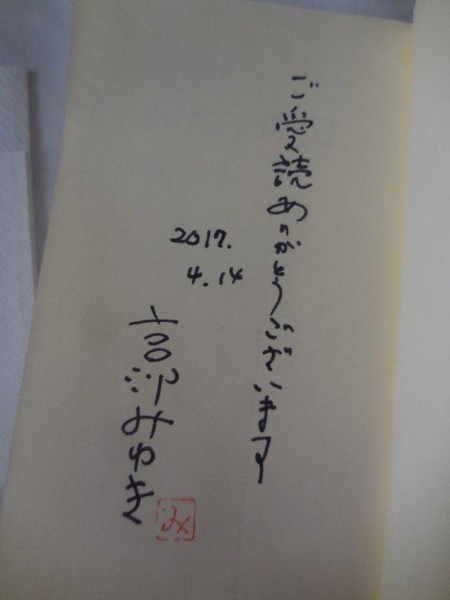 ご愛読ありがとうございます
2017.
4.14
みゆき